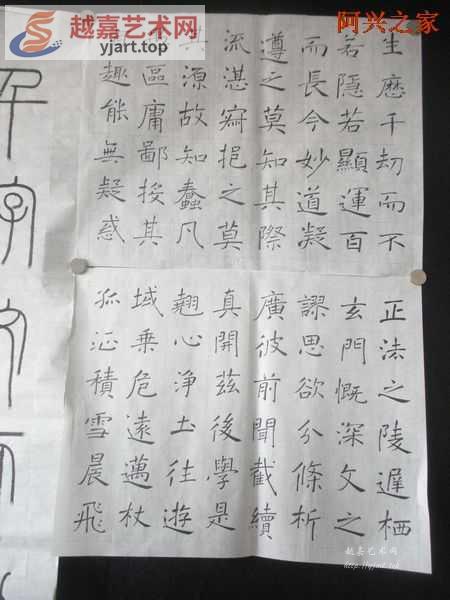 越嘉艺术网
yjart.top
阿兴之家
生歷千劫而不
若隱若顯運百
而長今妙道凝
遵之莫知其際
流湛寂挹之莫
其源故知蠢凡
區庸鄙投其
趣能無疑惑
正法之陵遲栖
玄門慨深文之
謬思欲分條析
廣彼前聞截續
真開茲後學是
翹心淨土往遊
域乘危遠邁杖
孤征積雪晨飛
千字文
越嘉艺术网
http://yjart.top